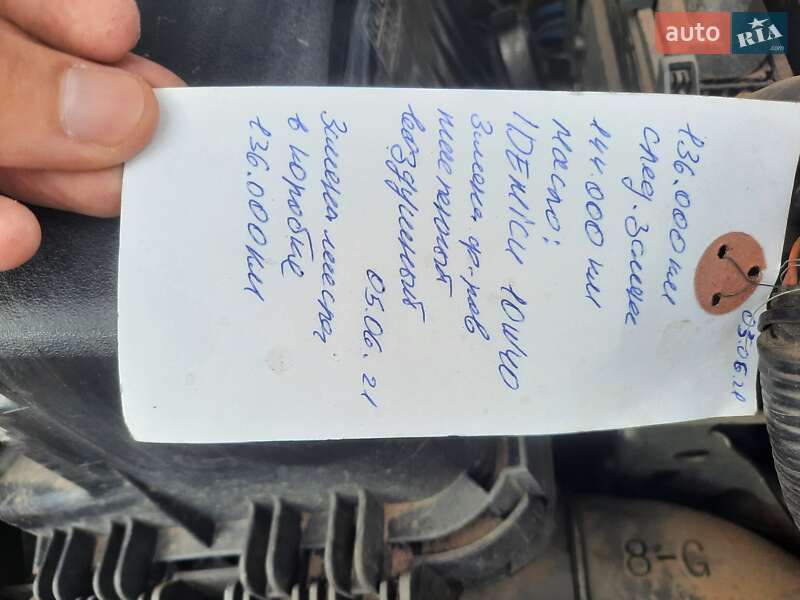 auto RIA.com
136.000 км
след. замена
144.000 км
масло:
IDEMICU 10W40
Замена ф-ров
топливный
воздушный
05.06.21
Замена масла
в коробке
136.000 км
05.06.21
8-G